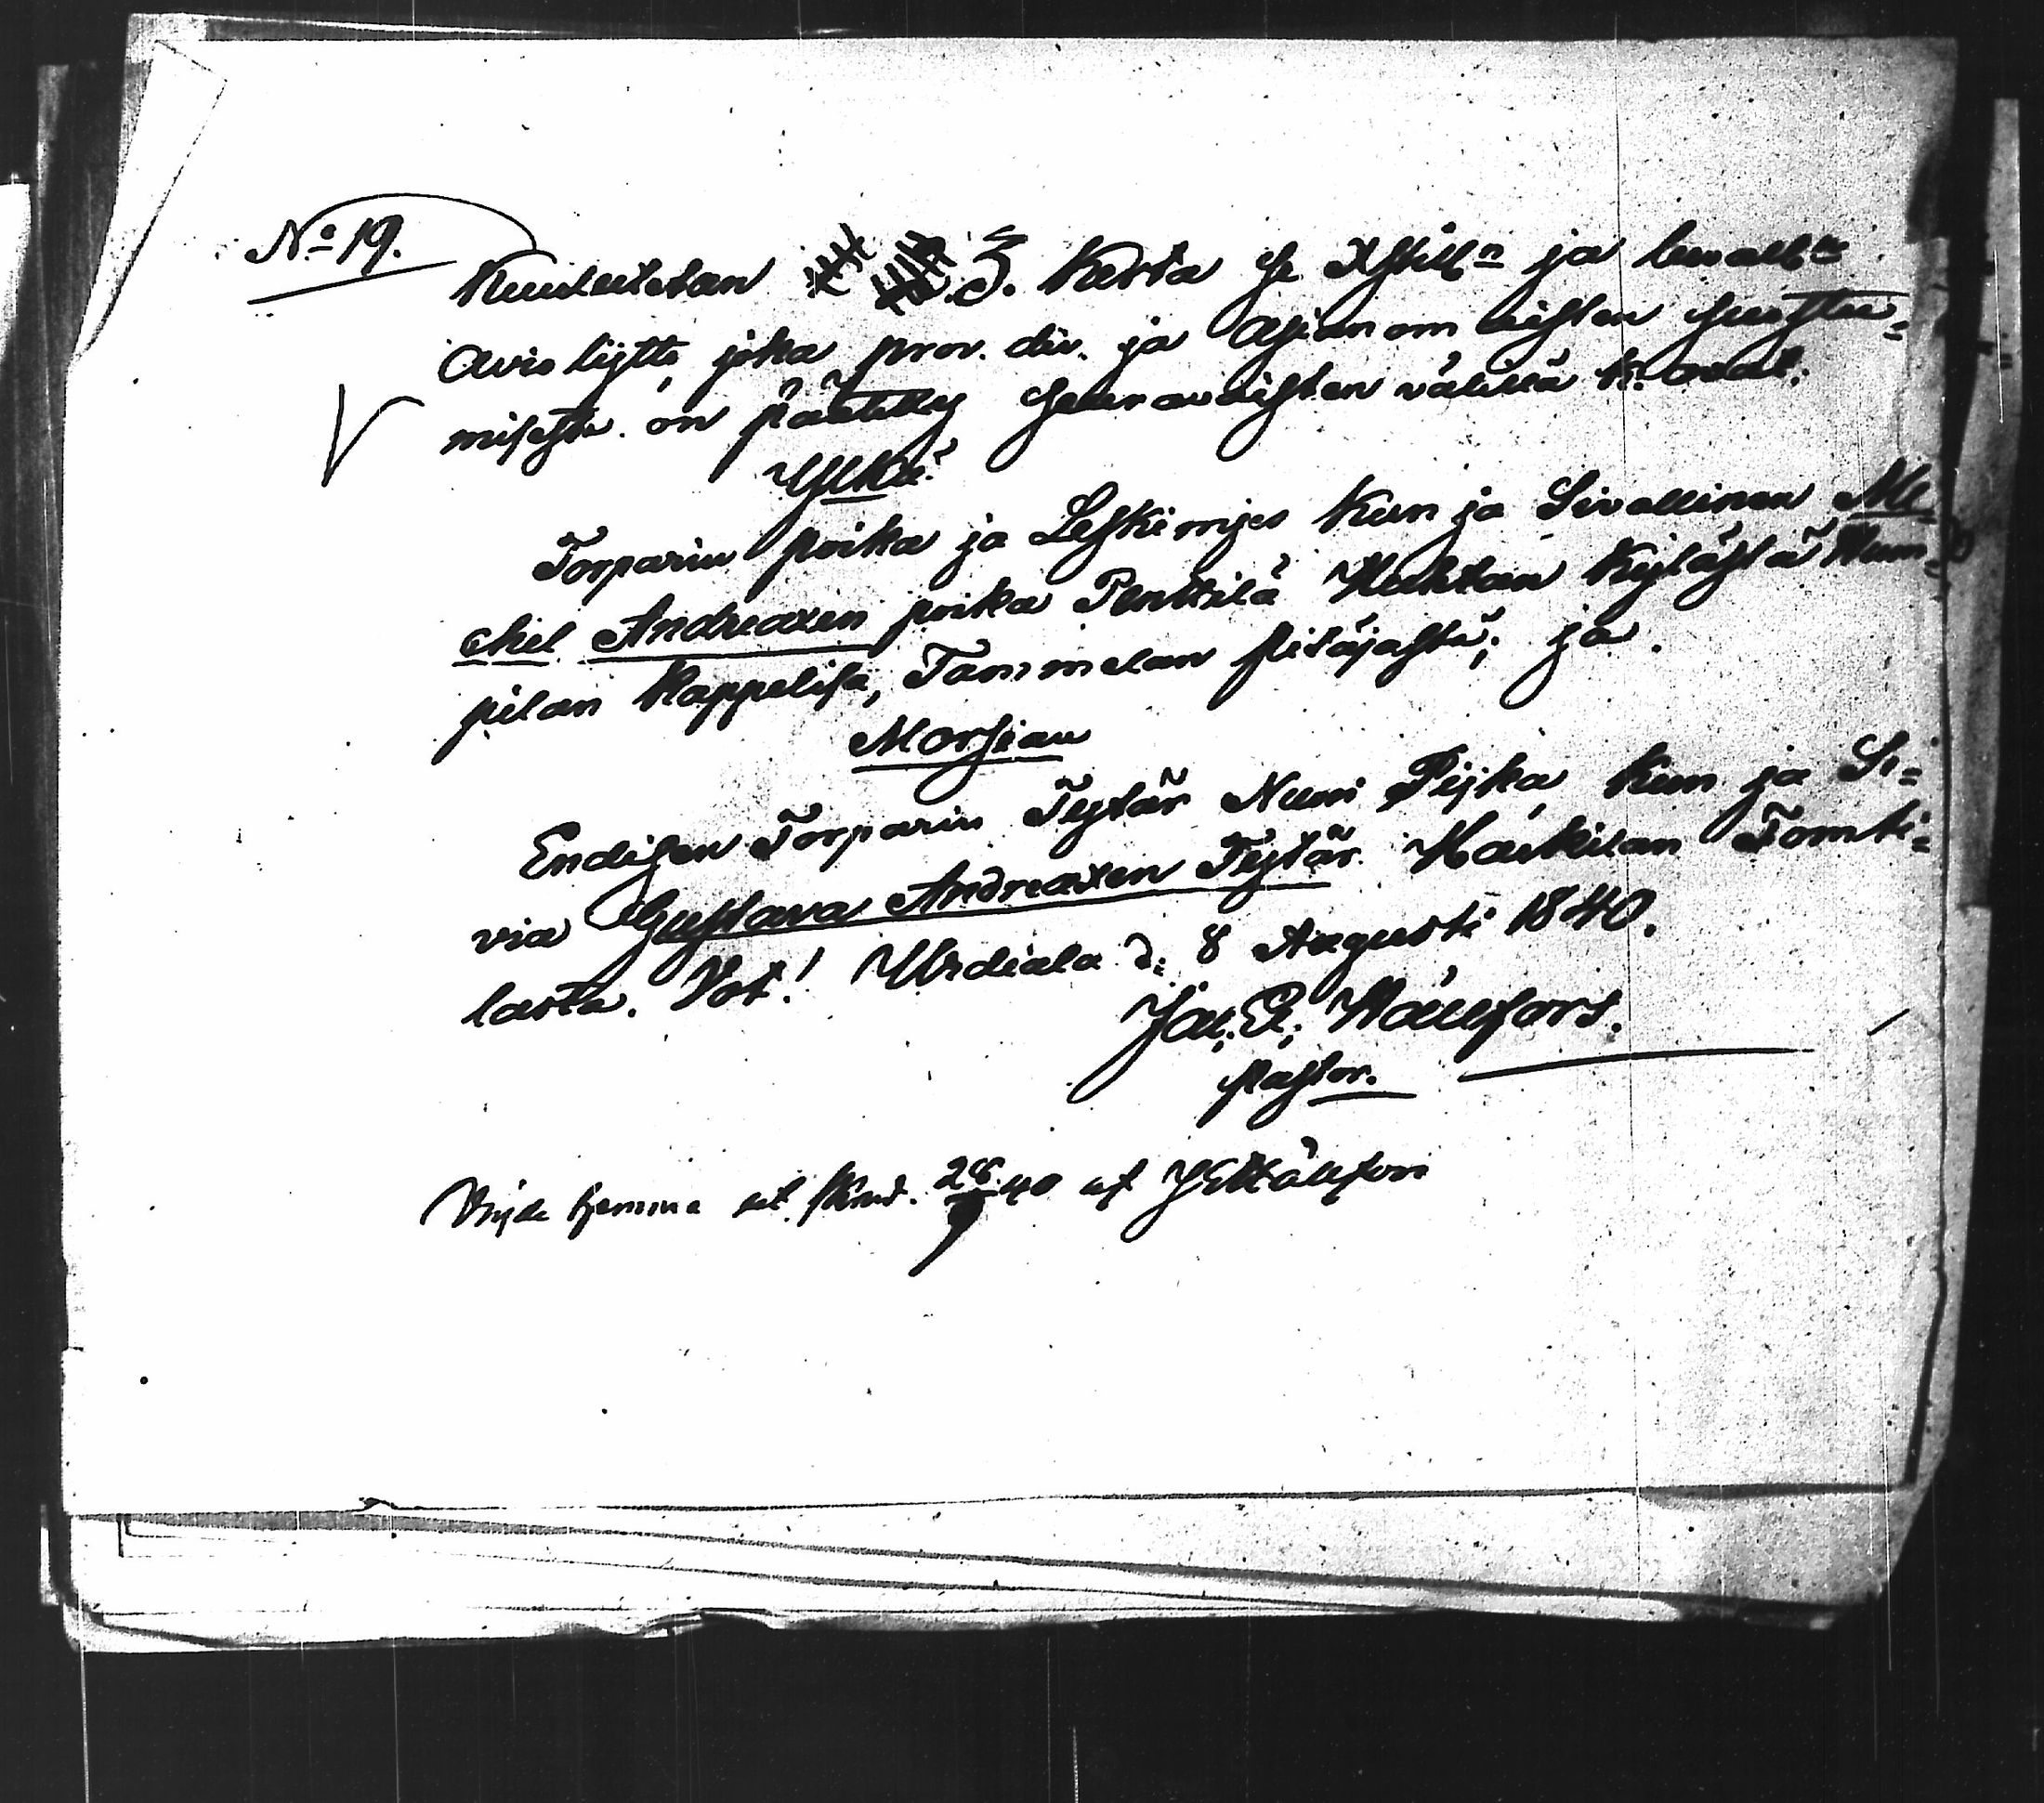 No 19.
Kuulutetan 3. Kerta se Xstilln ja luvallin
Avio lijtto, joka prov. div. ja Asianomaisten suostu=
misesta on päätetty seuraavaisten välillä k. ovat.
Ylkä
Torparin poika ja Leskimjes Kun ja Sivallinen Mi=
chel Andreaxen poika Penttilä Huhtan Kylästä Hum=
pilan Kappelisa, Tammelan pitäjästä; ja
Morsian
Endisen Torparin Tytär Nuori Pijka Kun ja Si=
via Gustava Andreaxen Tytär Hackilan Tomti=
lasta. Vot! Urdiala d. 8 Augusti 1840.
Jac. E. Hällfors.
pastor.
Vigde hemma 40 af Hällfors